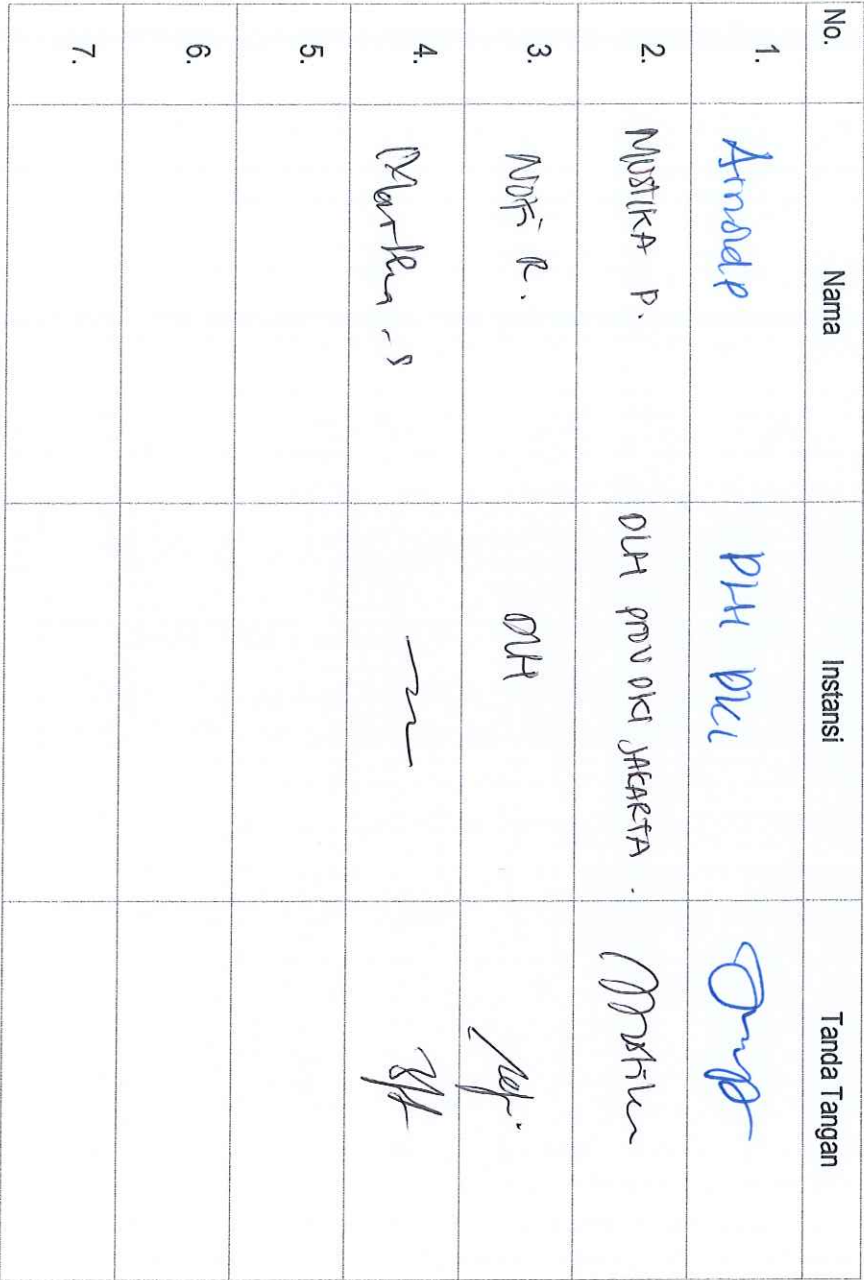 No. Nama Instansi Tanda Tangan
1. Arnold P DLH DKI
2. MUSTIKA P. DLH PROV DKI JAKARTA. Mustika
3. NOFi R. DLH
4. Martha. S
5.
6.
7.